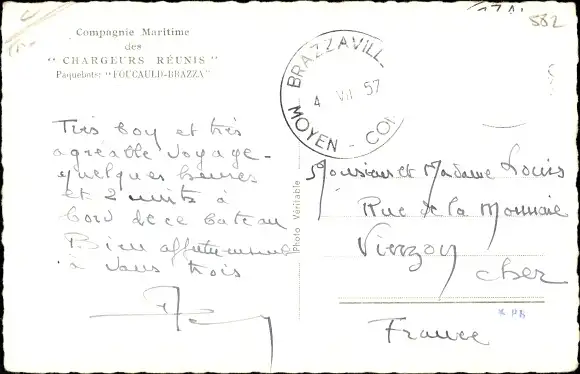 582
Compagnie Maritime
des
"CHARGEURS RÉUNIS"
Paquebots: "FOUCAULD-BRAZZA"
BRAZZAVILL
4 VII 57
MOYEN - CO
Très bon et très
agréable voyage -
quelques heures
et 2 nuits à
bord de ce bateau
Bien affectueusement
à vous trois
Photo Véritable
Monsieur et Madame Louis
Rue de la Monnaie
Vierzon
Cher
France